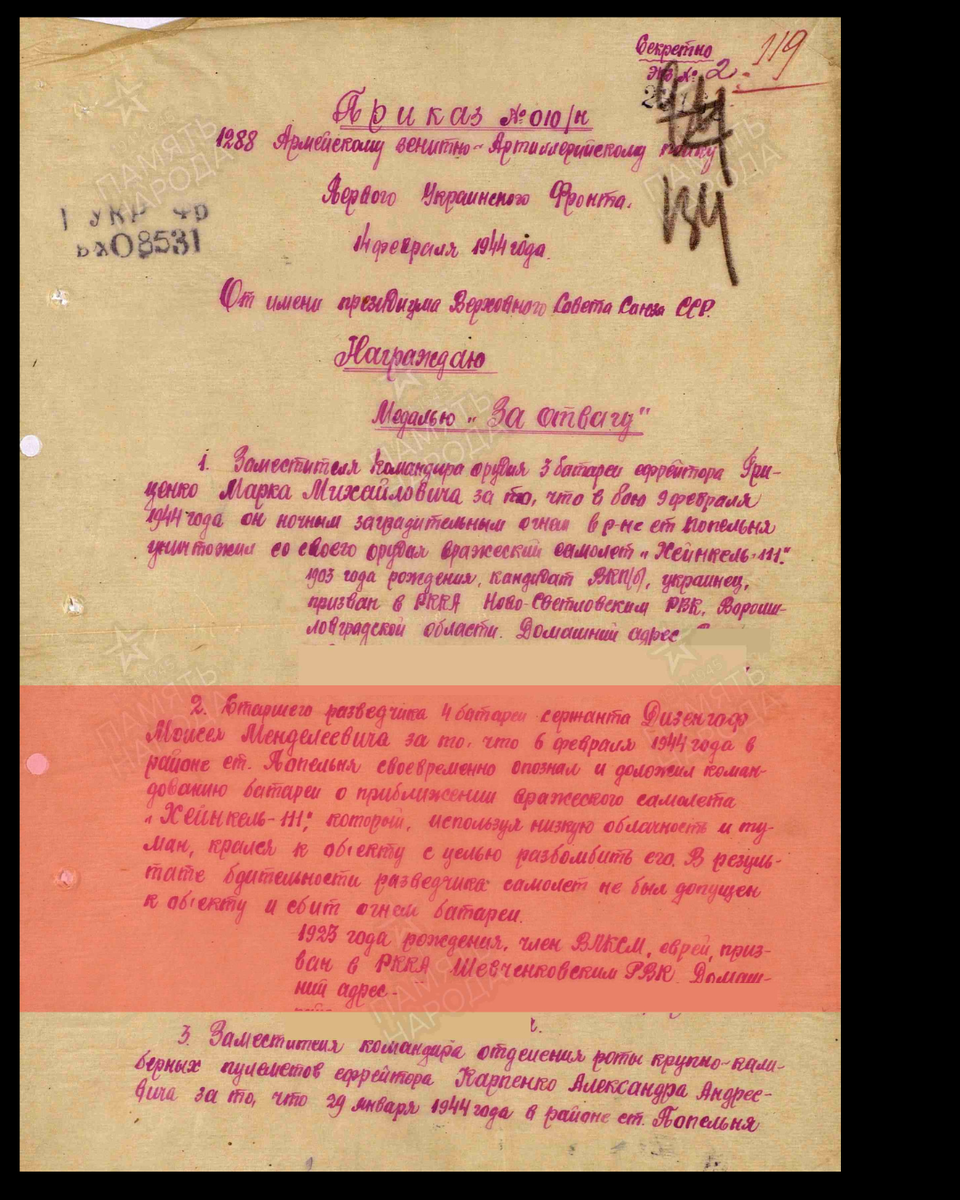 Секретно
Экз № 2.
119
Приказ № 010/н
1288 Армейскому зенитно-Артиллерийскому полку
Первого Украинского Фронта.
134
1 УКР ФР
Вх08531
14 февраля 1944 года.
От имени президиума Верховного Совета Союза ССР.
Награждаю
Медалью „За отвагу"
1. Заместителя командира орудия 3 батареи ефрейтора Гри-
ценко Марка Михайловича за то, что в бою 9 февраля
1944 года он ночным заградительным огнем в р-не ст Попельня
уничтожил со своего орудия вражеский самолет „Хейнкель-111".
1903 года рождения, кандидат ВКП(б), украинец,
призван в РККА Ново-Светловским РВК, Вороши-
ловградской области. Домашний адрес
2. Старшего разведчика 4 батареи сержанта Дизенгоф
Моисея Менделеевича за то, что 6 февраля 1944 года в
районе ст. Попельня своевременно опознал и доложил коман-
дованию батареи о приближении вражеского самолета
„Хейнкель-111", который, используя низкую облачность и ту-
ман, крался к объекту с целью разбомбить его. В резуль-
тате бдительности разведчика самолет не был допущен
к объекту и сбит огнем батареи.
1923 года рождения, член ВЛКСМ, еврей, приз-
ван в РККА Шевченковским РВК. Домаш-
ний адрес-
3. Заместителя командира отделения роты крупно-кали-
берных пулеметов ефрейтора Карпенко Александра Андрее-
вича за то, что 29 января 1944 года в районе ст. Попельня
ПАМЯТЬ
НАРОДА